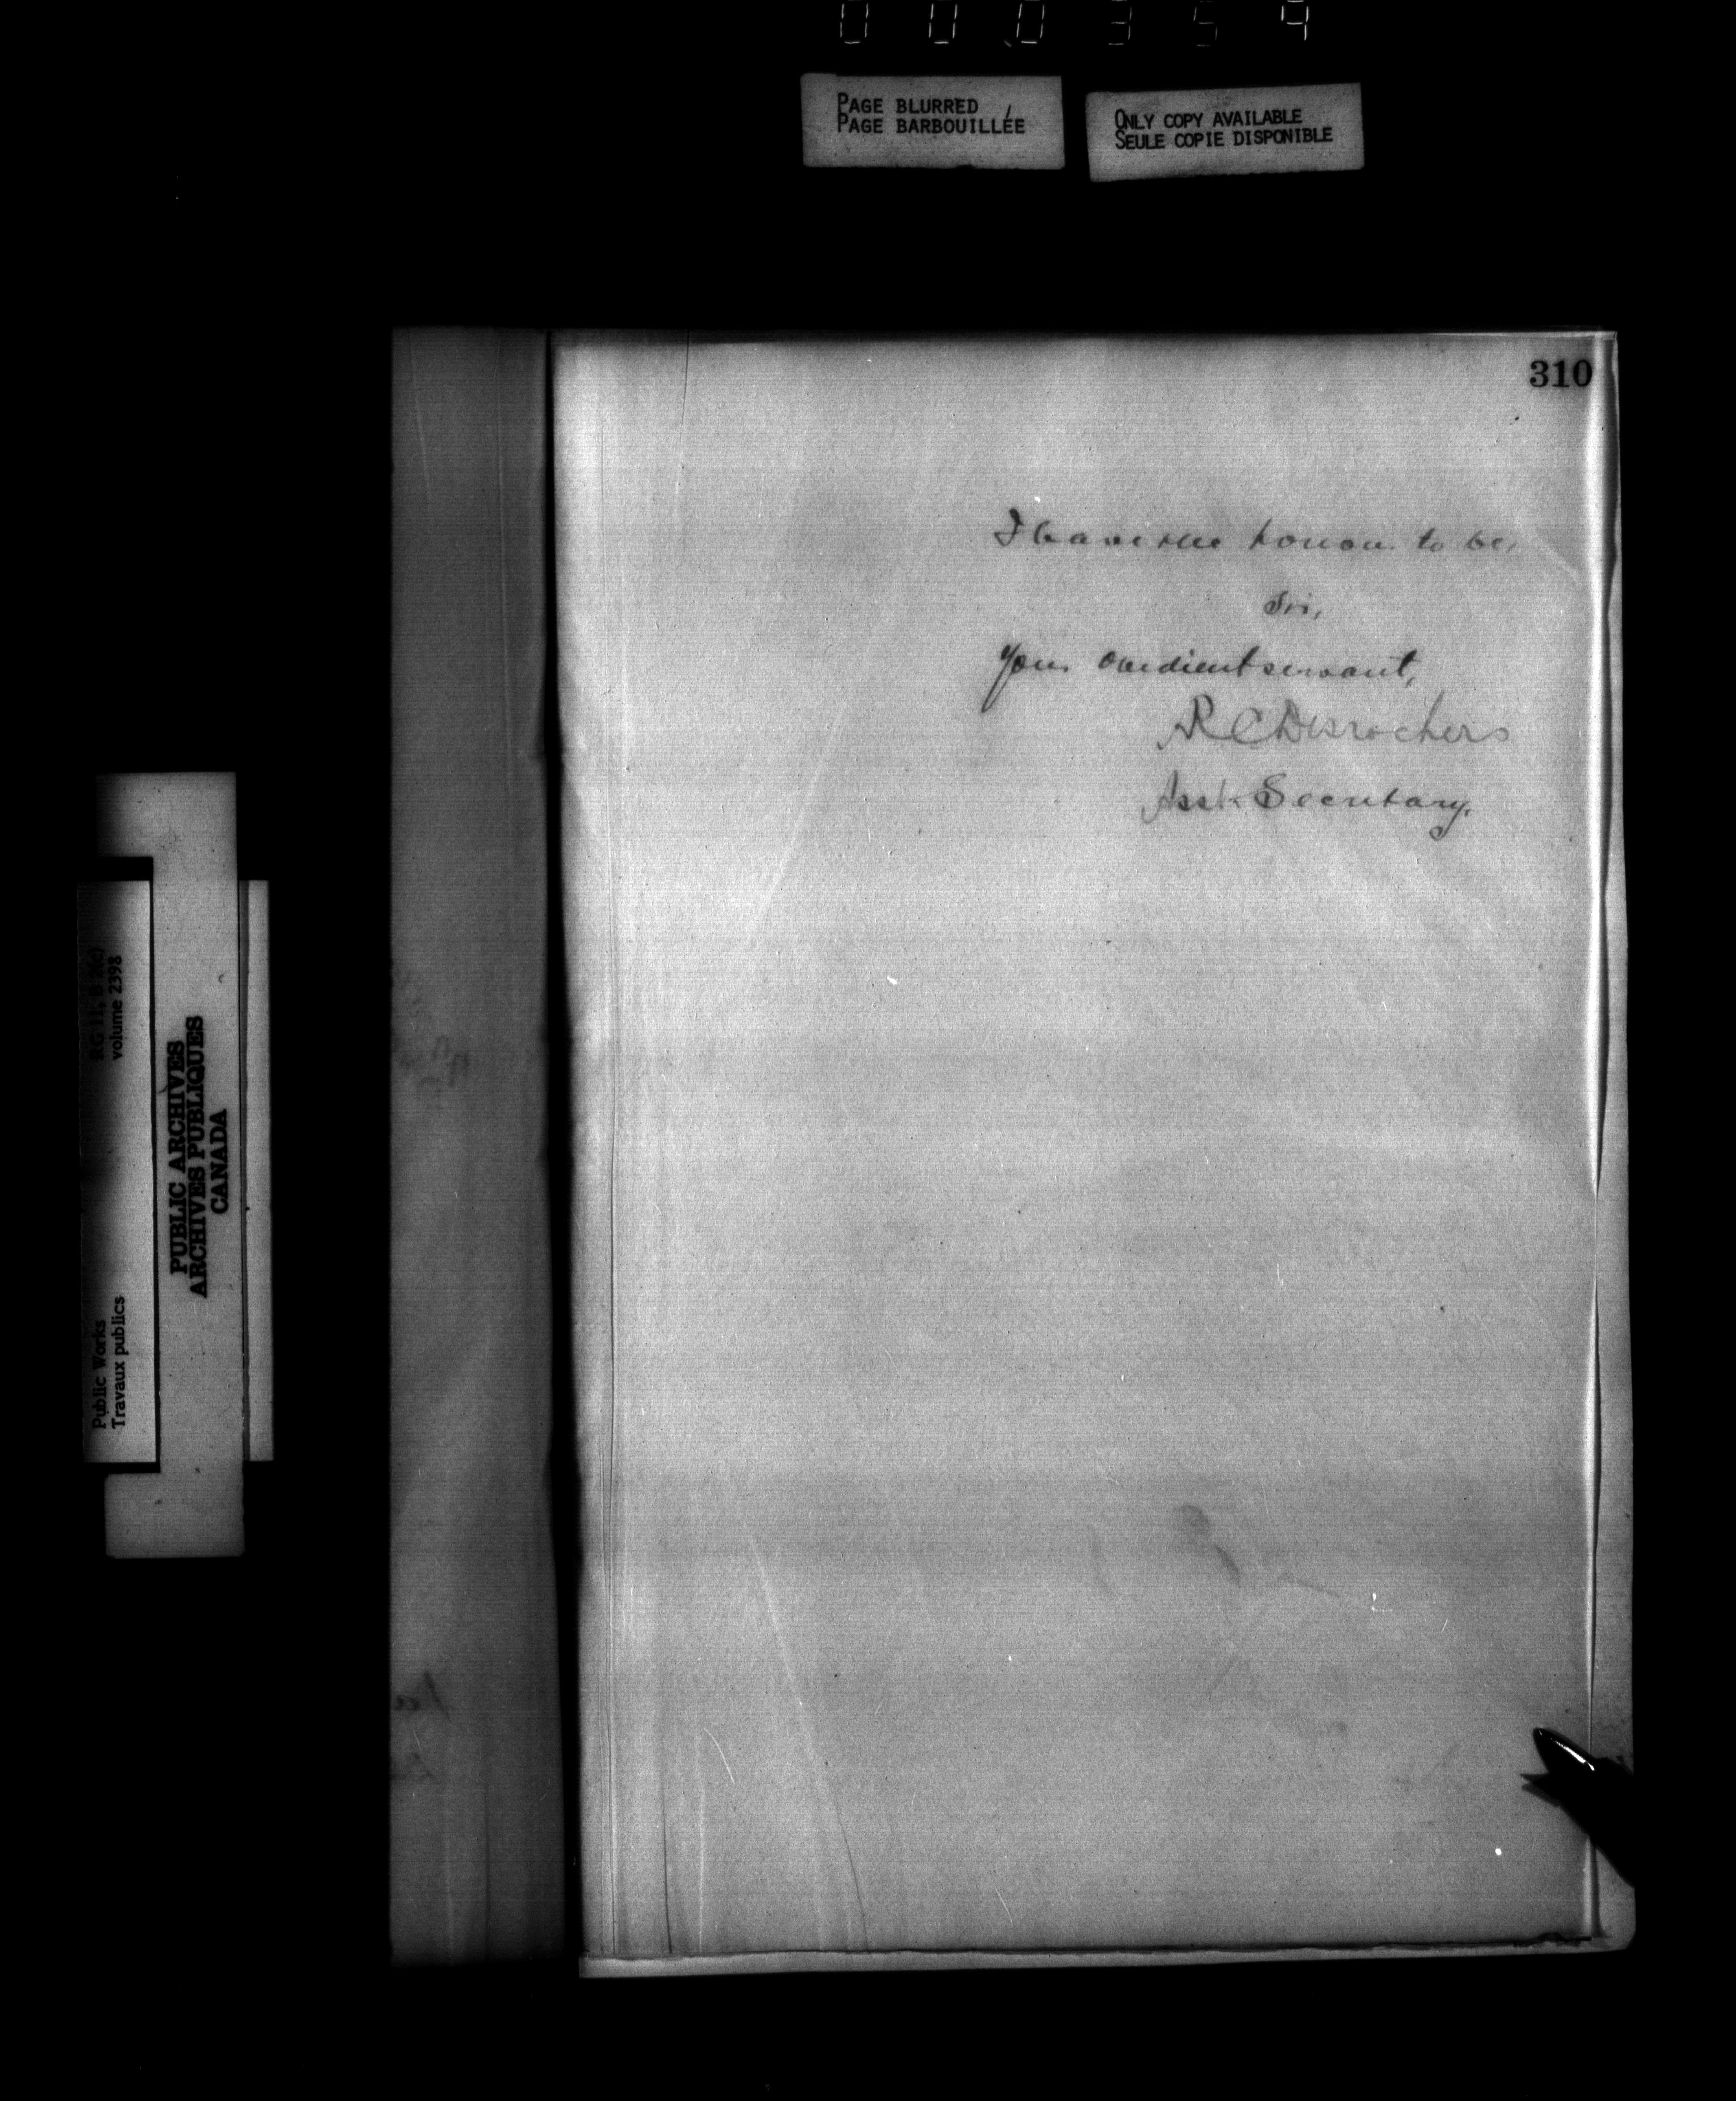 000354
PAGE BLURRED
PAGE BARBOUILLÉE
ONLY COPY AVAILABLE
SEULE COPIE DISPONIBLE
310
I have the honour to be,
Sir,
Your obedient servant,
R C Desrochers
Asst. Secretary.
RG 11, B 2(c)
volume 2398
PUBLIC ARCHIVES
ARCHIVES PUBLIQUES
CANADA
Public Works
Travaux publics